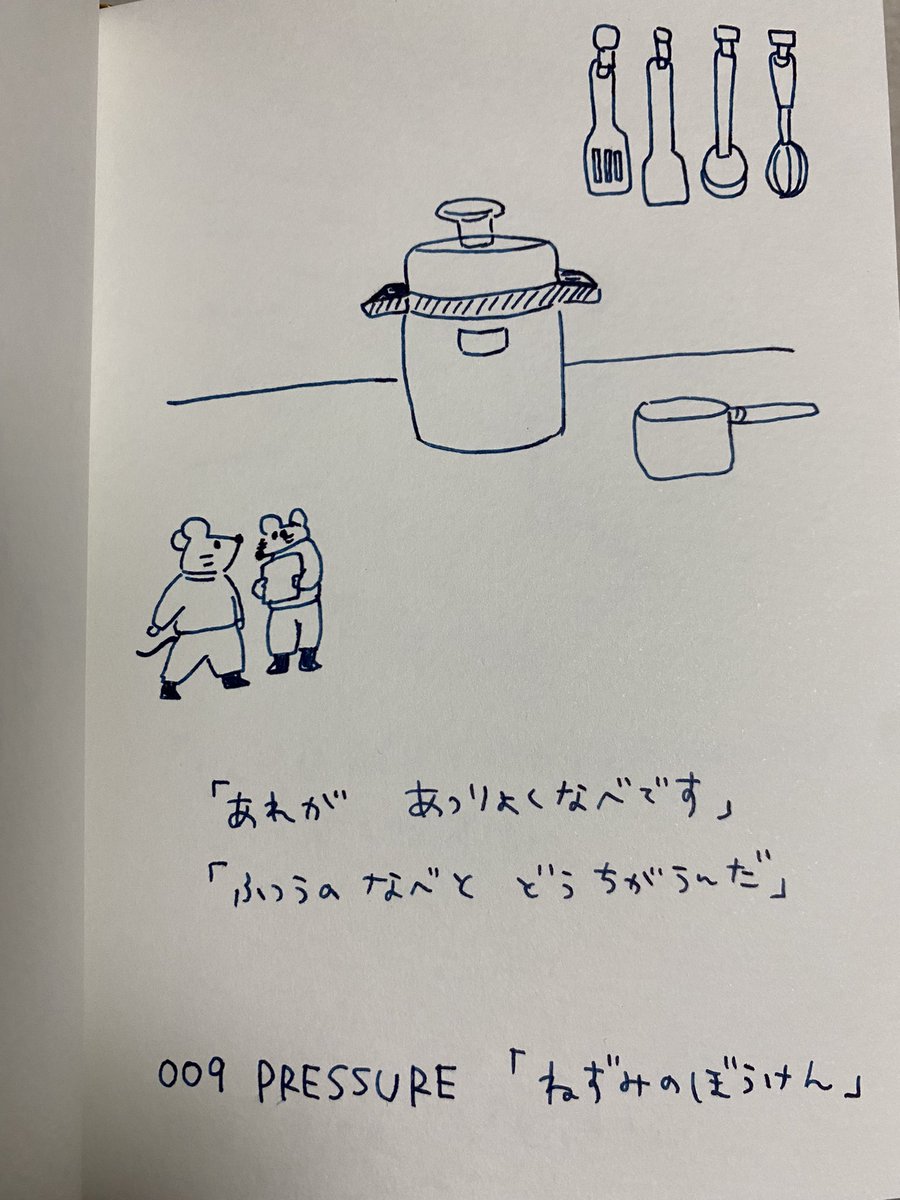 「あれが　あつりょくなべです」
「ふつうの なべと どうちがうんだ」
009 PRESSURE 「ねずみのぼうけん」